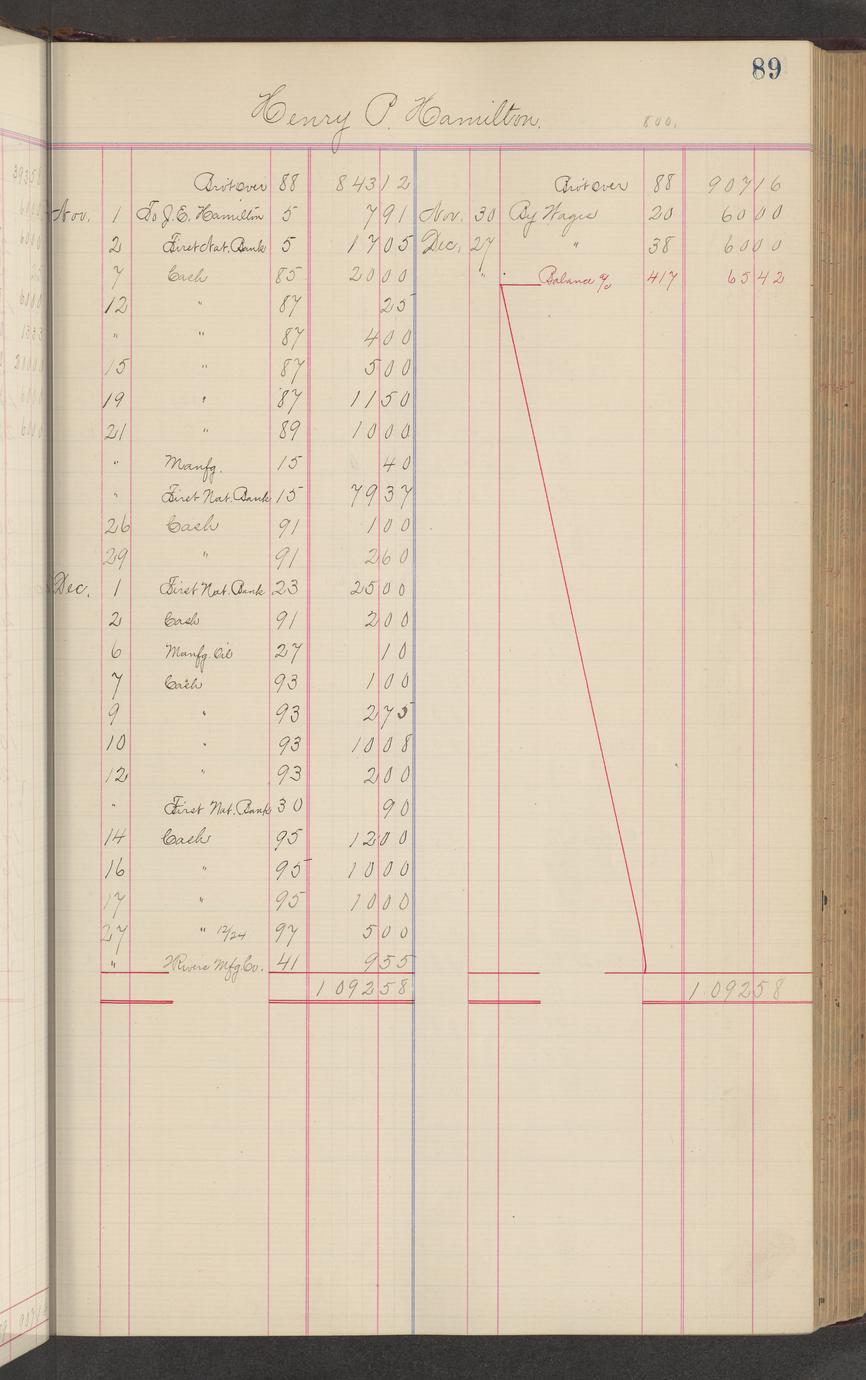 89
Henry P. Hamilton. 800.
Bro't over 88 843 12 Bro't over 88 907 16
Nov. 1 To J. E. Hamilton 5 7 91 Nov. 30 By Wages 20 60 00
2 First Nat. Bank 5 17 05 Dec. 27 " 38 60 00
7 Cash 85 20 00 " Balance a/c 417 65 42
12 " 87 25
" " 87 4 00
15 " 87 5 00
19 " 87 11 50
21 " 89 10 00
" Manfg. 15 40
" First Nat. Bank 15 79 37
26 Cash 91 1 00
29 " 91 2 60
Dec. 1 First Nat. Bank 23 25 00
2 Cash 91 2 00
6 Manfg. Oil 27 10
7 Cash 93 1 00
9 " 93 2 75
10 " 93 10 08
12 " 93 2 00
" First Nat. Bank 30 90
14 Cash 95 12 00
16 " 95 10 00
17 " 95 10 00
27 " 12/24 97 5 00
" Rivers Mfg. Co. 41 9 55
1 092 58 1 092 58